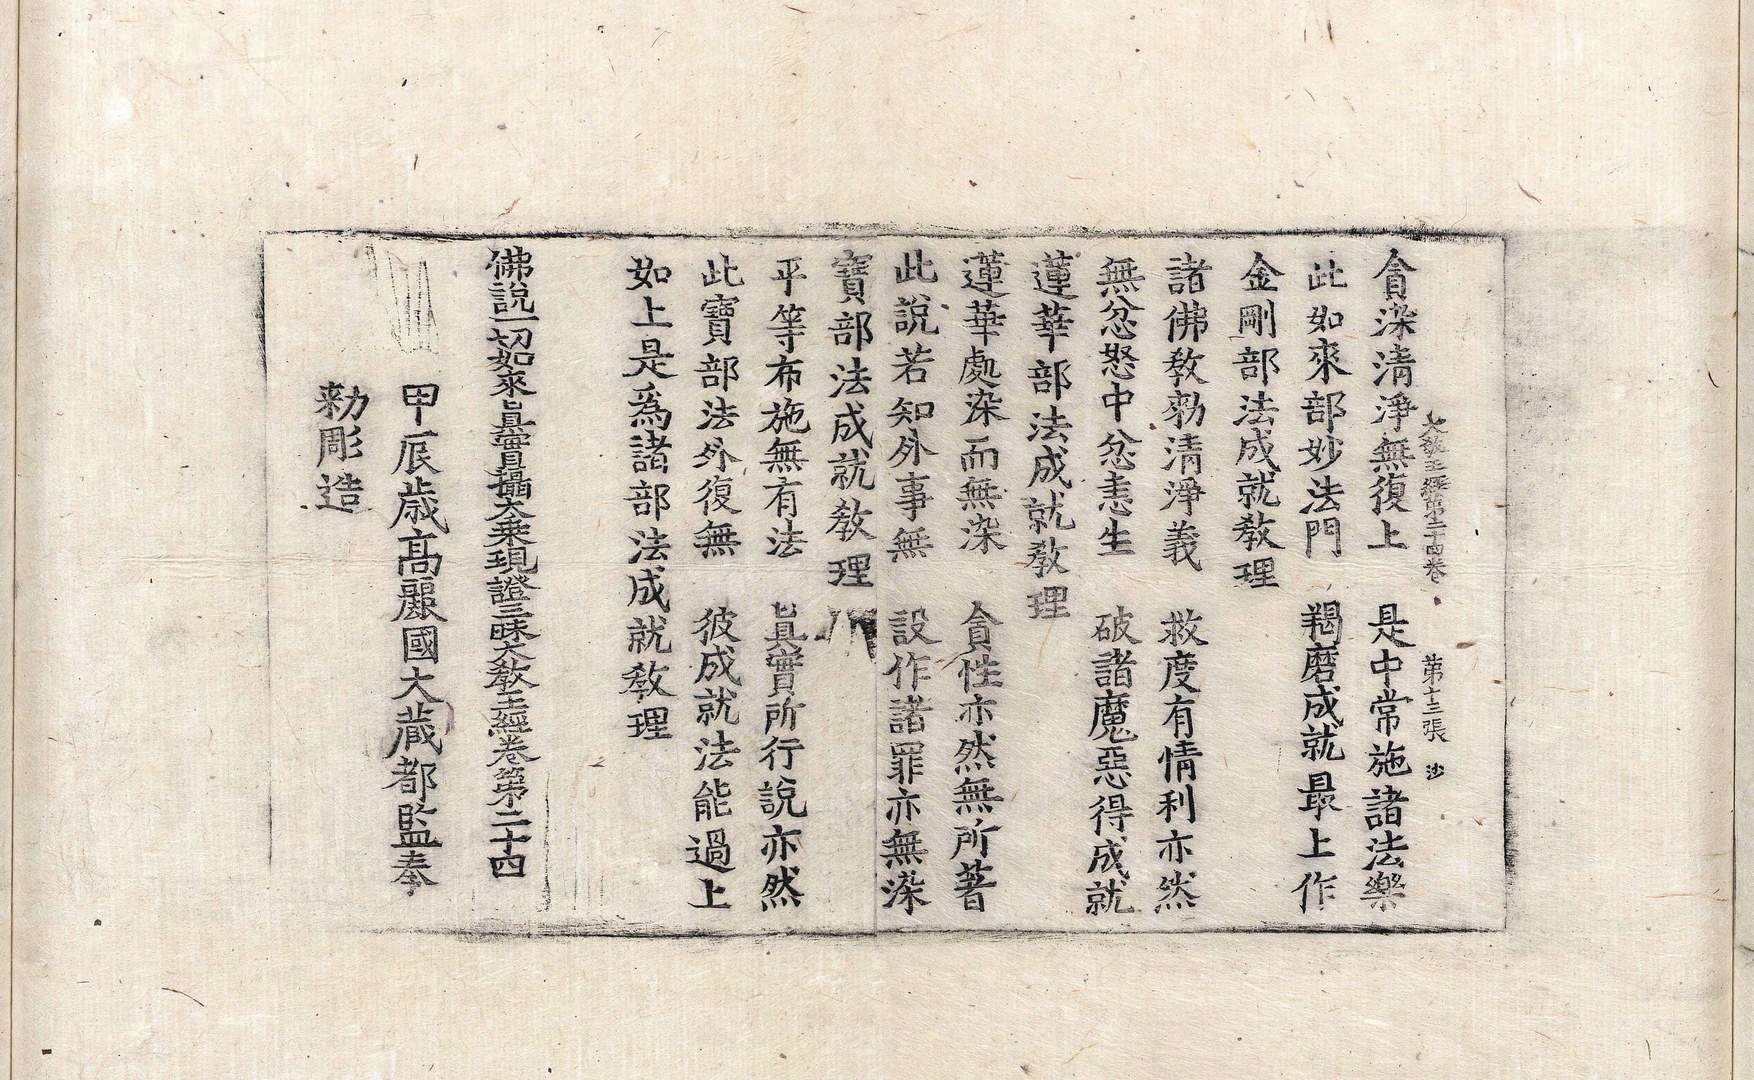 大教王經第二十四卷 第十三張 沙
貪染清淨無復上 是中常施諸法樂
此如來部妙法門 羯磨成就最上作
金剛部法成就敎理
諸佛敎勑清淨義 救度有情利亦然
無忿怒中忿恚生 破諸魔惡得成就
蓮華部法成就敎理
蓮華處染而無染 貪性亦然無所著
此說若知外事無 設作諸罪亦無染
寶部法成就敎理
平等布施無有法 眞實所行說亦然
此寶部法外復無 彼成就法能過上
如上是爲諸部法成就敎理
佛說一切如來眞實攝大乘現證三昧大敎王經卷第二十四
甲辰歲高麗國大藏都監奉
勑彫造